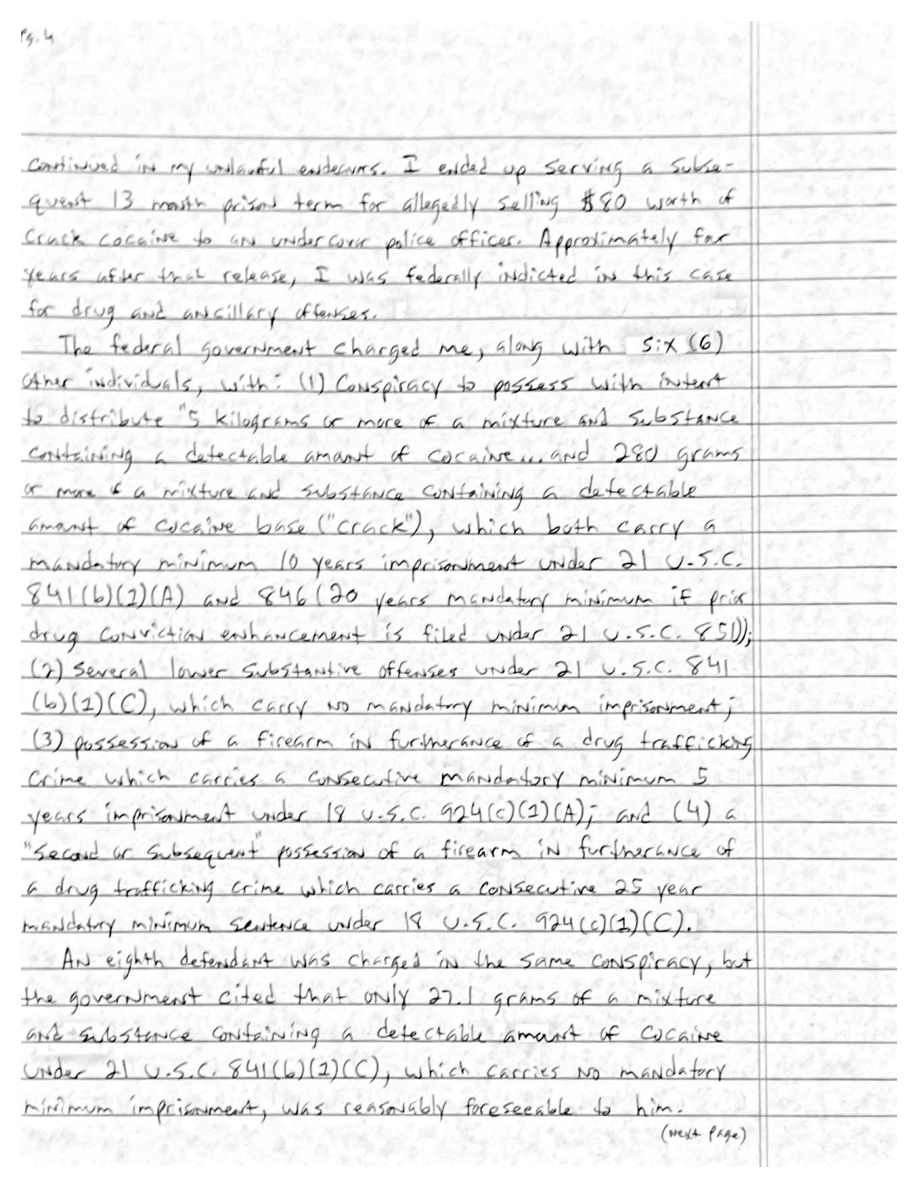 Pg. 4
continued in my unlawful endeavors. I ended up serving a subse-
quent 13 month prison term for allegedly selling $80 worth of
crack cocaine to an undercover police officer. Approximately four
years after that release, I was federally indicted in this case
for drug and ancillary offenses.
The federal government charged me, along with six (6)
other individuals, with: (1) Conspiracy to possess with intent
to distribute "5 kilograms or more of a mixture and substance
containing a detectable amount of cocaine... and 280 grams
or more of a mixture and substance containing a detectable
amount of cocaine base ("crack"), which both carry a
mandatory minimum 10 years imprisonment under 21 U.S.C.
841(b)(1)(A) and 846 (20 years mandatory minimum if prior
drug conviction enhancement is filed under 21 U.S.C. 851));
(2) several lower substantive offenses under 21 U.S.C. 841
(b)(1)(C), which carry no mandatory minimum imprisonment;
(3) possession of a firearm in furtherance of a drug trafficking
crime which carries a consecutive mandatory minimum 5
years imprisonment under 18 U.S.C. 924(c)(1)(A); and (4) a
"second or subsequent" possession of a firearm in furtherance of
a drug trafficking crime which carries a consecutive 25 year
mandatory minimum sentence under 18 U.S.C. 924(c)(1)(C).
An eighth defendant was charged in the same conspiracy, but
the government cited that only 27.1 grams of a mixture
and substance containing a detectable amount of cocaine
under 21 U.S.C. 841(b)(1)(C), which carries no mandatory
minimum imprisonment, was reasonably foreseeable to him.
(next page)